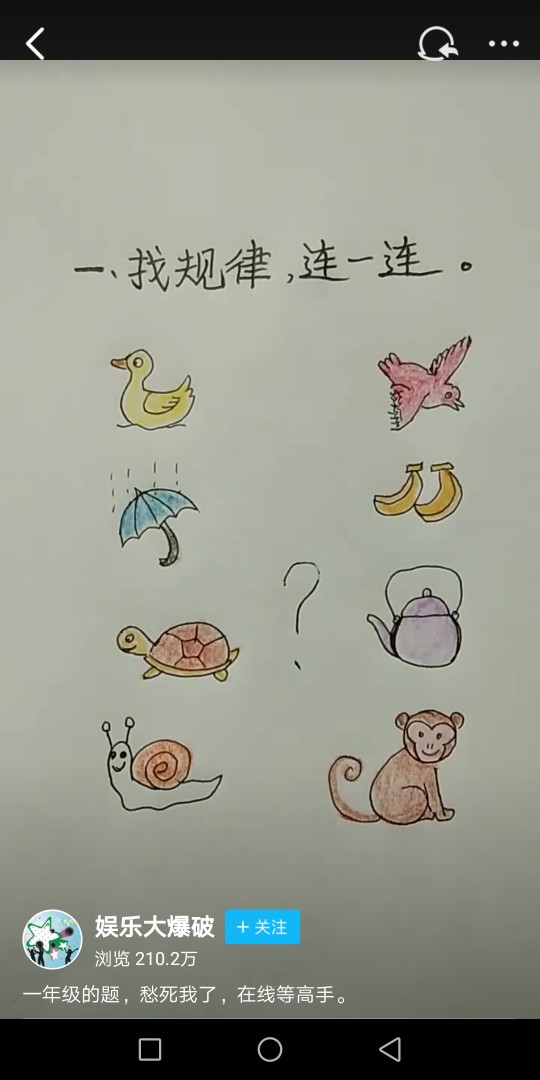 一、找规律,连一连。
?
娱乐大爆破
+关注
浏览 210.2万
一年级的题，愁死我了，在线等高手。